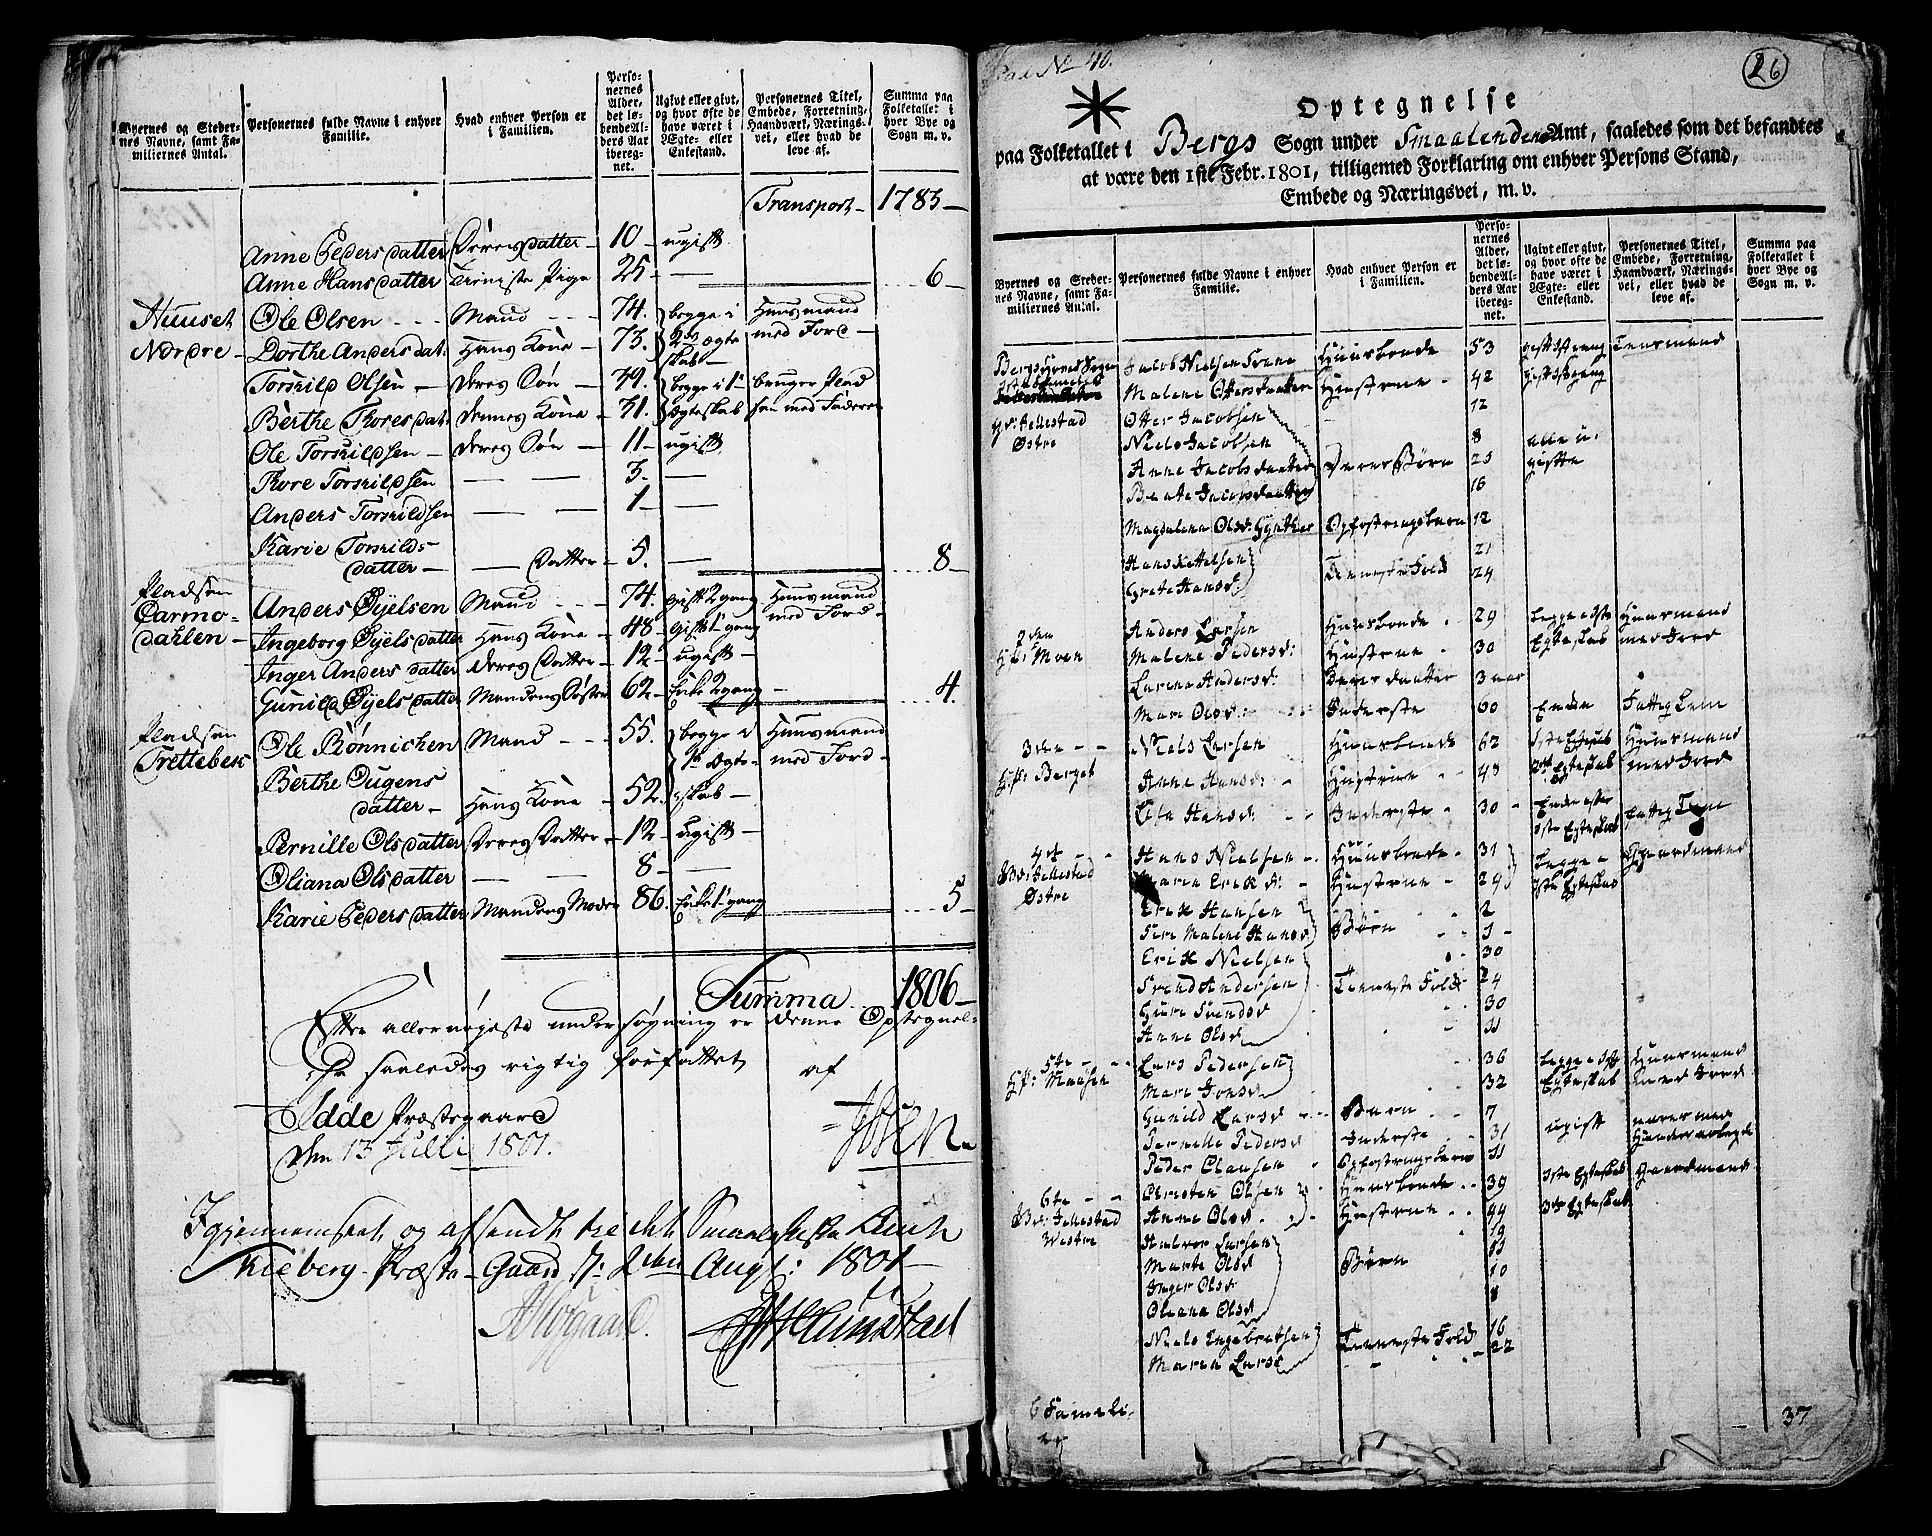 Byernes og Stedernes Navne, samt Familiernes Antal. | Personernes fulde Navne i enhver Familie. | Hvad enhver Person er i Familien. | Personernes Alder, det løbende Alders Aar iberegnet. | Ugivt eller givt, og hvor ofte de have været i Ægte- eller Enkestand. | Personernes Titel, Embede, Forretning, Haandværk, Næringsvei, eller hvad de leve af. | Summa paa Folketallet i hver Bye og Sogn m. v.
Transport 1783
Anne Peders datter Deres datter 10 ugift
Anne Hans datter Tieniste Pige 25 — 6
Huuset Ole Olsen Mand 74. begge i Huusmand
Nordre Dorthe Anders dat. Hans Kone 73. 2den Ægte med Jord
skab
Torskild Olsen Deres Søn 39. begge i 1te bruger Plad
Berthe Thores dat. Dennes Kone 31. Ægteskab sen med Faderen
Ole Torskildsen Deres Søn 11 ugift
Thore Torskildsen — 3. —
Anders Torskildsen — 1 —
Karie Torskilds
datter — Datter 5. — 8
Pladsen
Anders Øyelsen Mand 74. gift 2 gang Huusmand
dahlen Ingeborg Øyels datter Hans Kone 48 Gift 1 gang med Jord
Inger Anders datter deres Datter 12 ugift
Gunild Øyels datter Mandens Søster 62 Enke 2 gang — 4.
Pladsen Ole Rønnichen Mand 55. begge i Huusmand
Trettebek 1te Ægte med Jord
Berthe
datter Hans Kone 52. skab
Pernille Ols datter Deres Datter 12 Ugift
Oliana Ols datter — 8 —
Karie Peders datter Mandens Moder 86. Enke 1 gang 5
Summa 1806
Efter allernøieste undersøgning er denne Optegnel-
se saaledes rigtig forfattet
af
Idde Præstegaard
den 13 Julii 1801.
Igjennemseet og afsendt til det Smaalehnske Amt
Skieberg Præste-Gaard d: 2den Aug: 1801
No 40.
26
Optegnelse
paa Folketallet i Bergs Sogn under Smaalendenes Amt, saaledes som det befandtes
at være den 1ste Febr. 1801, tilligemed Forklaring om enhver Persons Stand,
Embede og Næringsvei, m. v.
Byernes og Stedernes Navne, samt Familiernes Antal. | Personernes fulde Navne i enhver Familie. | Hvad enhver Person er i Familien. | Personernes Alder, det løbende Alders Aar iberegnet. | Ugivt eller givt, og hvor ofte de have været i Ægte- eller Enkestand. | Personernes Titel, Embede, Forretning, Haandværk, Næringsvei, eller hvad de leve af. | Summa paa Folketallet i hver Bye og Sogn m. v.
Jacob Nielsen Huusbonde 53 gift 1ste gang
Malene Ottersdaatter Hustrue 42 gift 1ste gang
Otter Jacobsen 12
Jellestad
Østre Niels Jacobsen 8 alle u-
Anne Jacobsdaatter Deres Børn 23 gifte
Beate Jacobsdaatter 16
Magdalena Olsd: Opfostringsbarn 12
Hans Kettelsen 21
Grete Hansd: Tieneste Folk 24
2den Anders Larsen Huusbonde 29 begge i 1ste Huusmand
Moen Malene Pedersd: Hustrue 30 Egteskab med Jord
Andersd: Deres daatter 3 aar
Mari Olsd: Inderste 60 Enke Fattig Lem
3die Niels Larsen Huusbonde 62 1ste Egteskab Huusmand
Berget Anne Hansd: Hustrue 48 Egteskab med Jord
Hansd: Inderste 30 Enke efter fattig Lem
1ste Egteskab
4de Hans Nielsen Huusbonde 31 begge i Gaardmand
Jellestad Maren Eriksd: Hustrue 29 1ste Egteskab
Østre
Erik Hansen 2
Malene Hansd: Børn 3
Erik Nielsen 30
Svend Andersen Tieneste Folk 24
Guri Svendsd: 30
Anne Olsd:
5te Lars Pedersen 36 begge i 1ste Huusmand
Mari 32 Egteskab med Jord
Gunild Larsd: Barn 7
Pernelle Pedersd: Inderste 31 ugift nærer med
Haandarbeyde
Peder Clausen Opfostringsbarn 11
6te Christen Olsen Huusbonde 39 1ste Egteskab Gaardmand
Jellestad Anne Olsd: Hustrue 44 Egteskab
Westre
Halvor Larsen 19
Marte Olsd: Børn
Inger Olsd: 10
Oleana Olsd: 8
Niels Engebretsen Tieneste Folk 16
Maria Larsd: 22
6 Fameli-
er 37